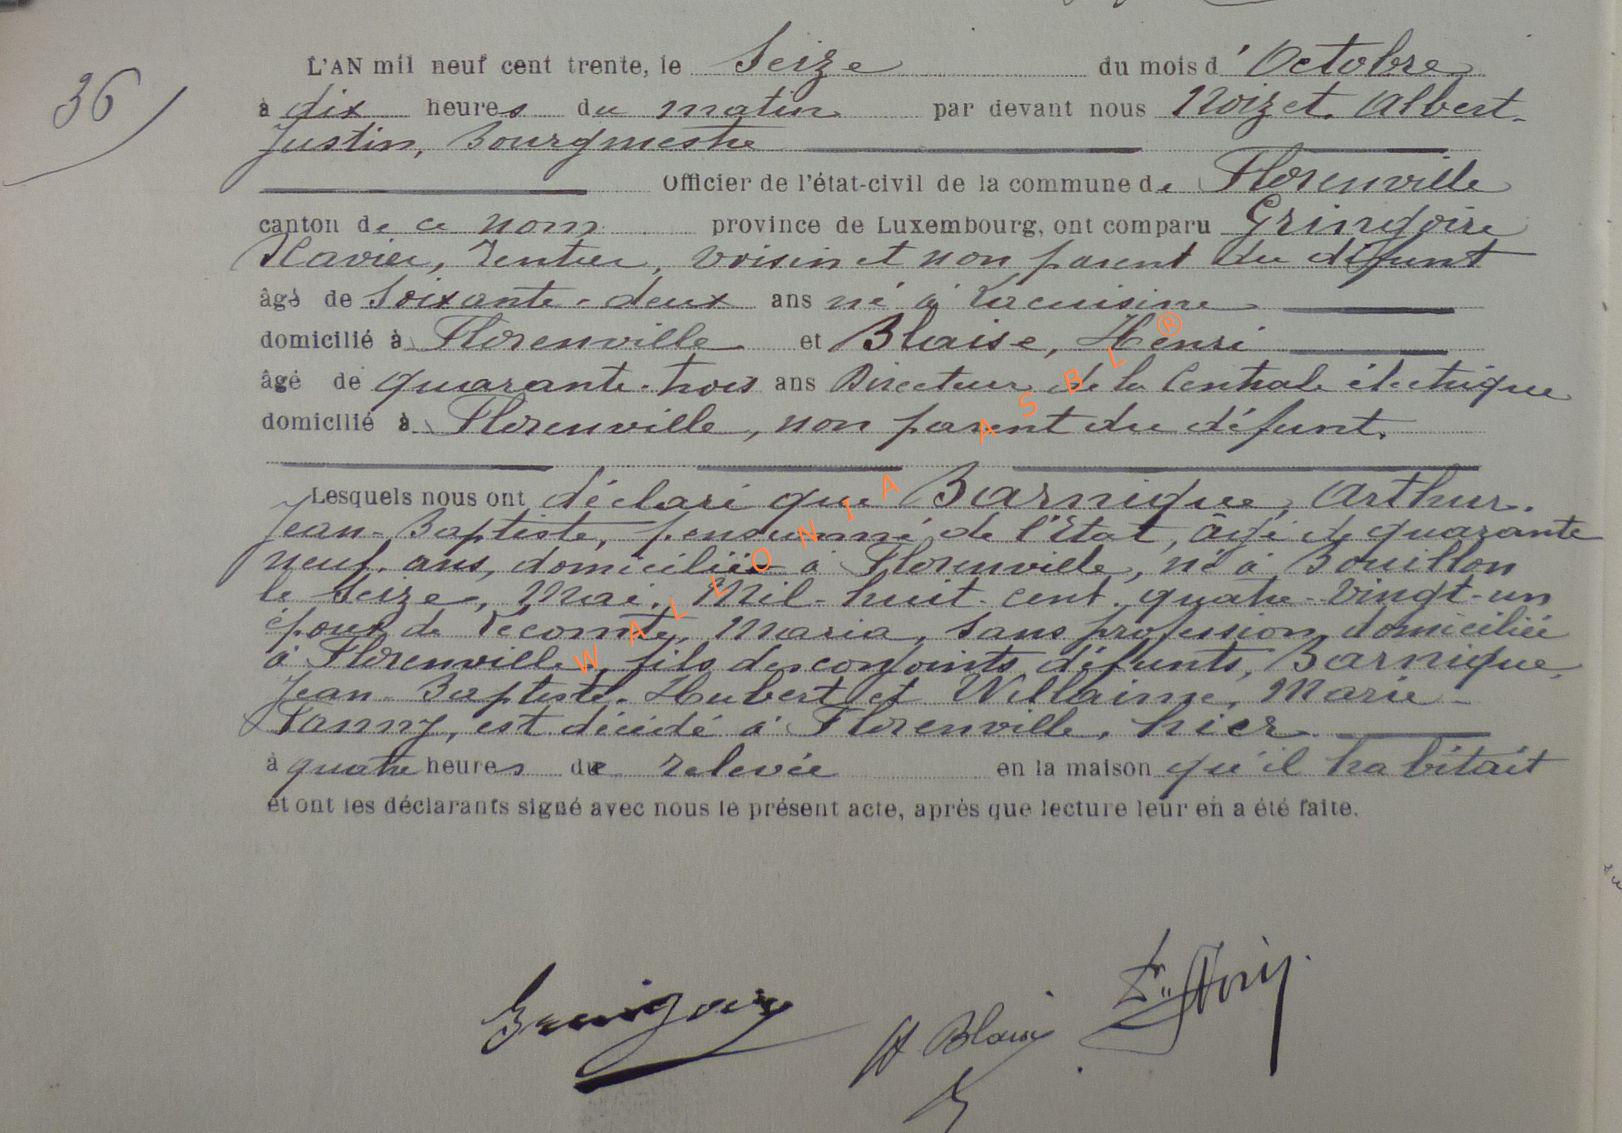 36
L'AN mil neuf cent trente, le Seize du mois d'Octobre
à dix heures du matin par devant nous Noizet. Albert-
Justin, Bourgmestre
Officier de l'état-civil de la commune de Florenville
canton de ce nom province de Luxembourg, ont comparu Gringoire
Xavier, rentier, voisin et non parent du défunt
âgé de Soixante-deux ans né à Lacuisine
domicilié à Florenville et Blaise, Henri
âgé de quarante-trois ans Directeur de la Centrale électrique
domicilié à Florenville, non parent du défunt.
Lesquels nous ont déclaré que Barnique, Arthur-
Jean-Baptiste, pensionné de l'Etat, âgé de quarante
neuf ans, domicilié à Florenville, né à Bouillon
le Seize, Mai, Mil-huit-cent-quatre-vingt-un
époux de Lecomte, Maria, sans profession domiciliée
à Florenville, fils des conjoints défunts, Barnique,
Jean-Baptiste-Hubert et Willaime, Marie-
Fanny, est décédé à Florenville, hier
à quatre heures de relevée en la maison qu'il habitait
et ont les déclarants signé avec nous le présent acte, après que lecture leur en a été faite.
Gringoire
H Blaise
WALLONIA ASBL ®